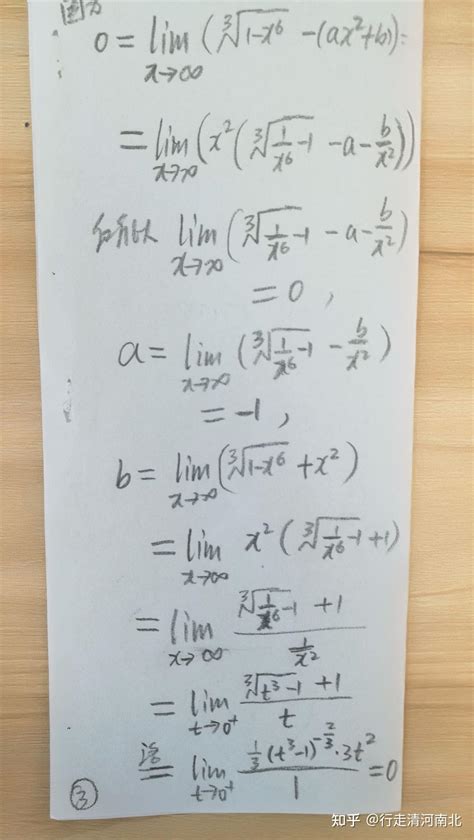 因为
0 = lim_{x→∞} (∛(1-x⁶) - (ax²+b)) =
= lim_{x→∞} (x² (∛(1/x⁶ - 1) - a - b/x²))
lim_{x→∞} (∛(1/x⁶ - 1) - a - b/x²)
= 0 ,
a = lim_{x→∞} (∛(1/x⁶ - 1) - b/x²)
= -1 ,
b = lim_{x→∞} (∛(1-x⁶) + x²)
= lim_{x→∞} x² (∛(1/x⁶ - 1) + 1)
= lim_{x→∞} (∛(1/x⁶ - 1) + 1) / (1/x²)
= lim_{t→0⁺} (∛(t³-1) + 1) / t
洛
= lim_{t→0⁺} (1/3 (t³-1)^{-2/3} · 3t²) / 1 = 0
③
知乎 @行走清河南北